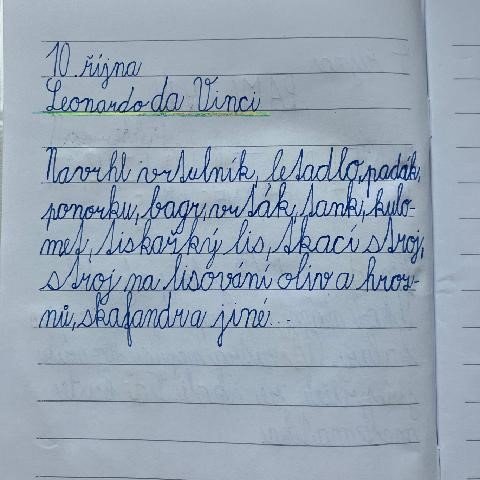 10. října
Leonardo da Vinci
Navrhl vrtulník, letadlo, padák,
ponorku, bagr, vrták, tank, kulo-
met, tiskařský lis, tkací stroj,
stroj na lisování oliv a hroz-
nů, skafandr a jiné...